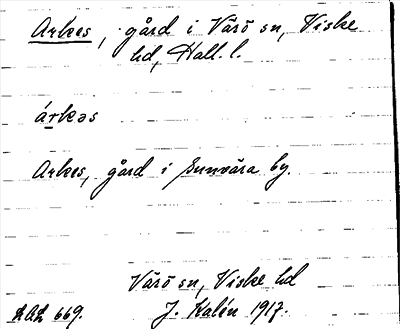 Arkes, gård i Värö sn, Viske
hd, Hall. l.
árkəs
Arkes, gård i Sunvära by.
Värö sn, Viske hd
LAL 669. J. Kalén 1917.